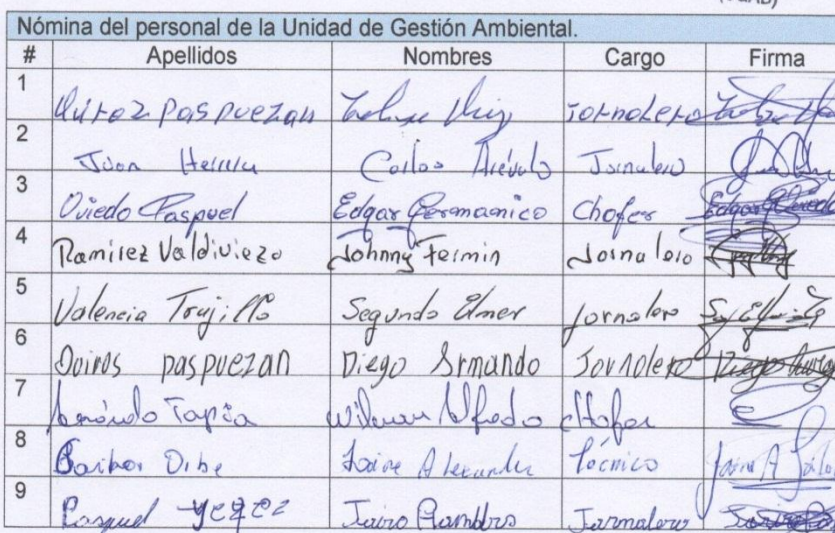 Nómina del personal de la Unidad de Gestión Ambiental.
# Apellidos Nombres Cargo Firma
1 Quiroz Paspuezan Jornalero
2 Juan Carlos Arévalo Jornalero
3 Oviedo Paspuel Edgar Germanico Chofer
4 Ramirez Valdiviezo Johnny Fermin Jornalero
5 Valencia Trujillo Segundo Elmer Jornalero
6 Quiros paspuezan Diego Armando Jornalero
7 Tapia Wilman Alfredo Chofer
8 Orbe Jaime Alexander Técnico
9 Pasquel yepez Jairo Jornalero